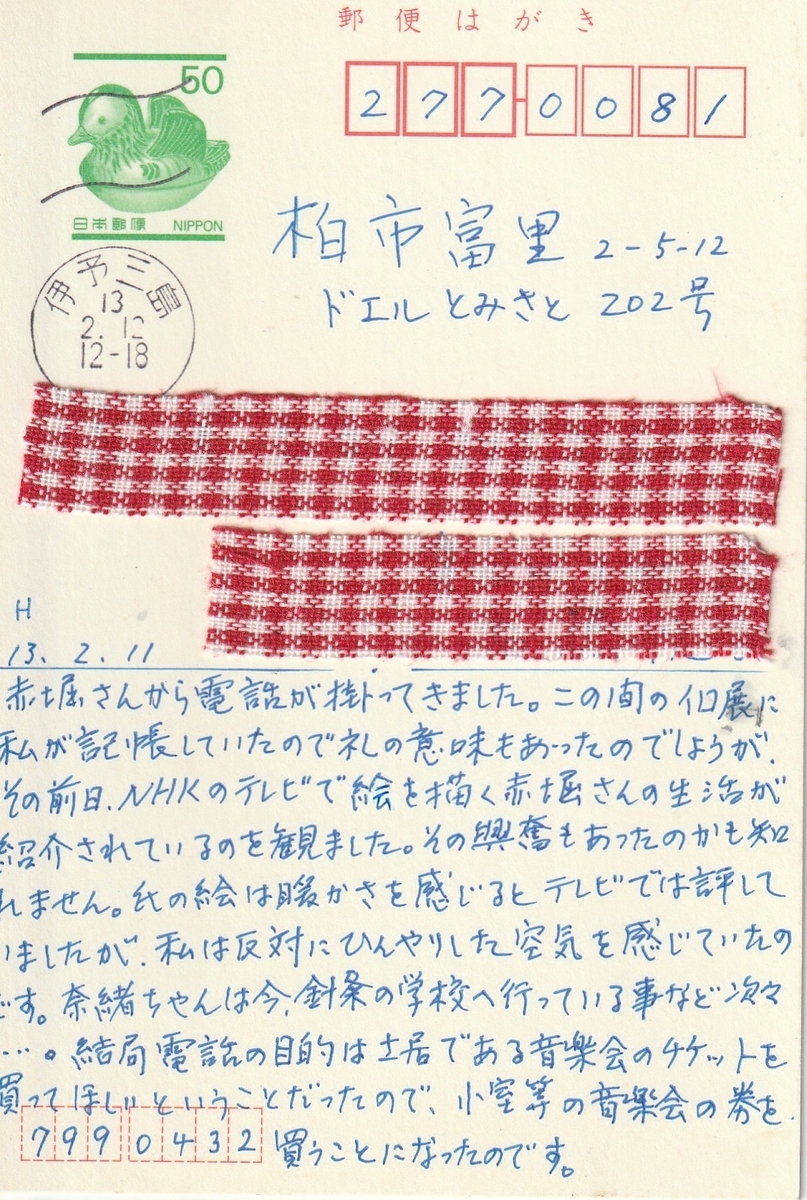 郵便はがき
50
日本郵便 NIPPON
277-0081
柏市富里 2-5-12
ドエルとみさと 202号
伊予三島
13
2.12
12-18
H
13.2.11
赤堀さんから電話が掛ってきました。この間の個展に
私が記帳していたので礼の意味もあったのでしょうが、
その前日、NHKのテレビで絵を描く赤堀さんの生活が
紹介されているのを観ました。その興奮もあったのかも知
れません。氏の絵は暖かさを感じるとテレビでは評して
いましたが、私は反対にひんやりした空気を感じていたの
です。奈緒ちゃんは今、針灸の学校へ行っている事など次々
…。結局電話の目的は土居である音楽会のチケットを
買ってほしいということだったので、小室等の音楽会の券を
7990432
買うことになったのです。